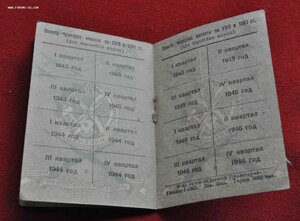 членских взносов за 1943 и 194 гг.
(для наклейки марок)
I квартал
1943 год
II квартал
1943 год
III квартал
1943 год
IV квартал
1943 год
I квартал
1944 год
II квартал
1944 год
III квартал
1944 год
IV квартал
1944 год
членских взносов за 1945 и 194 гг.
(для наклейки марок)
I квартал
1945 год
II квартал
1945 год
III квартал
1945 год
IV квартал
1945 год
I квартал
1946 год
II квартал
1946 год
III квартал
1946 год
IV квартал
1946 год
Тираж